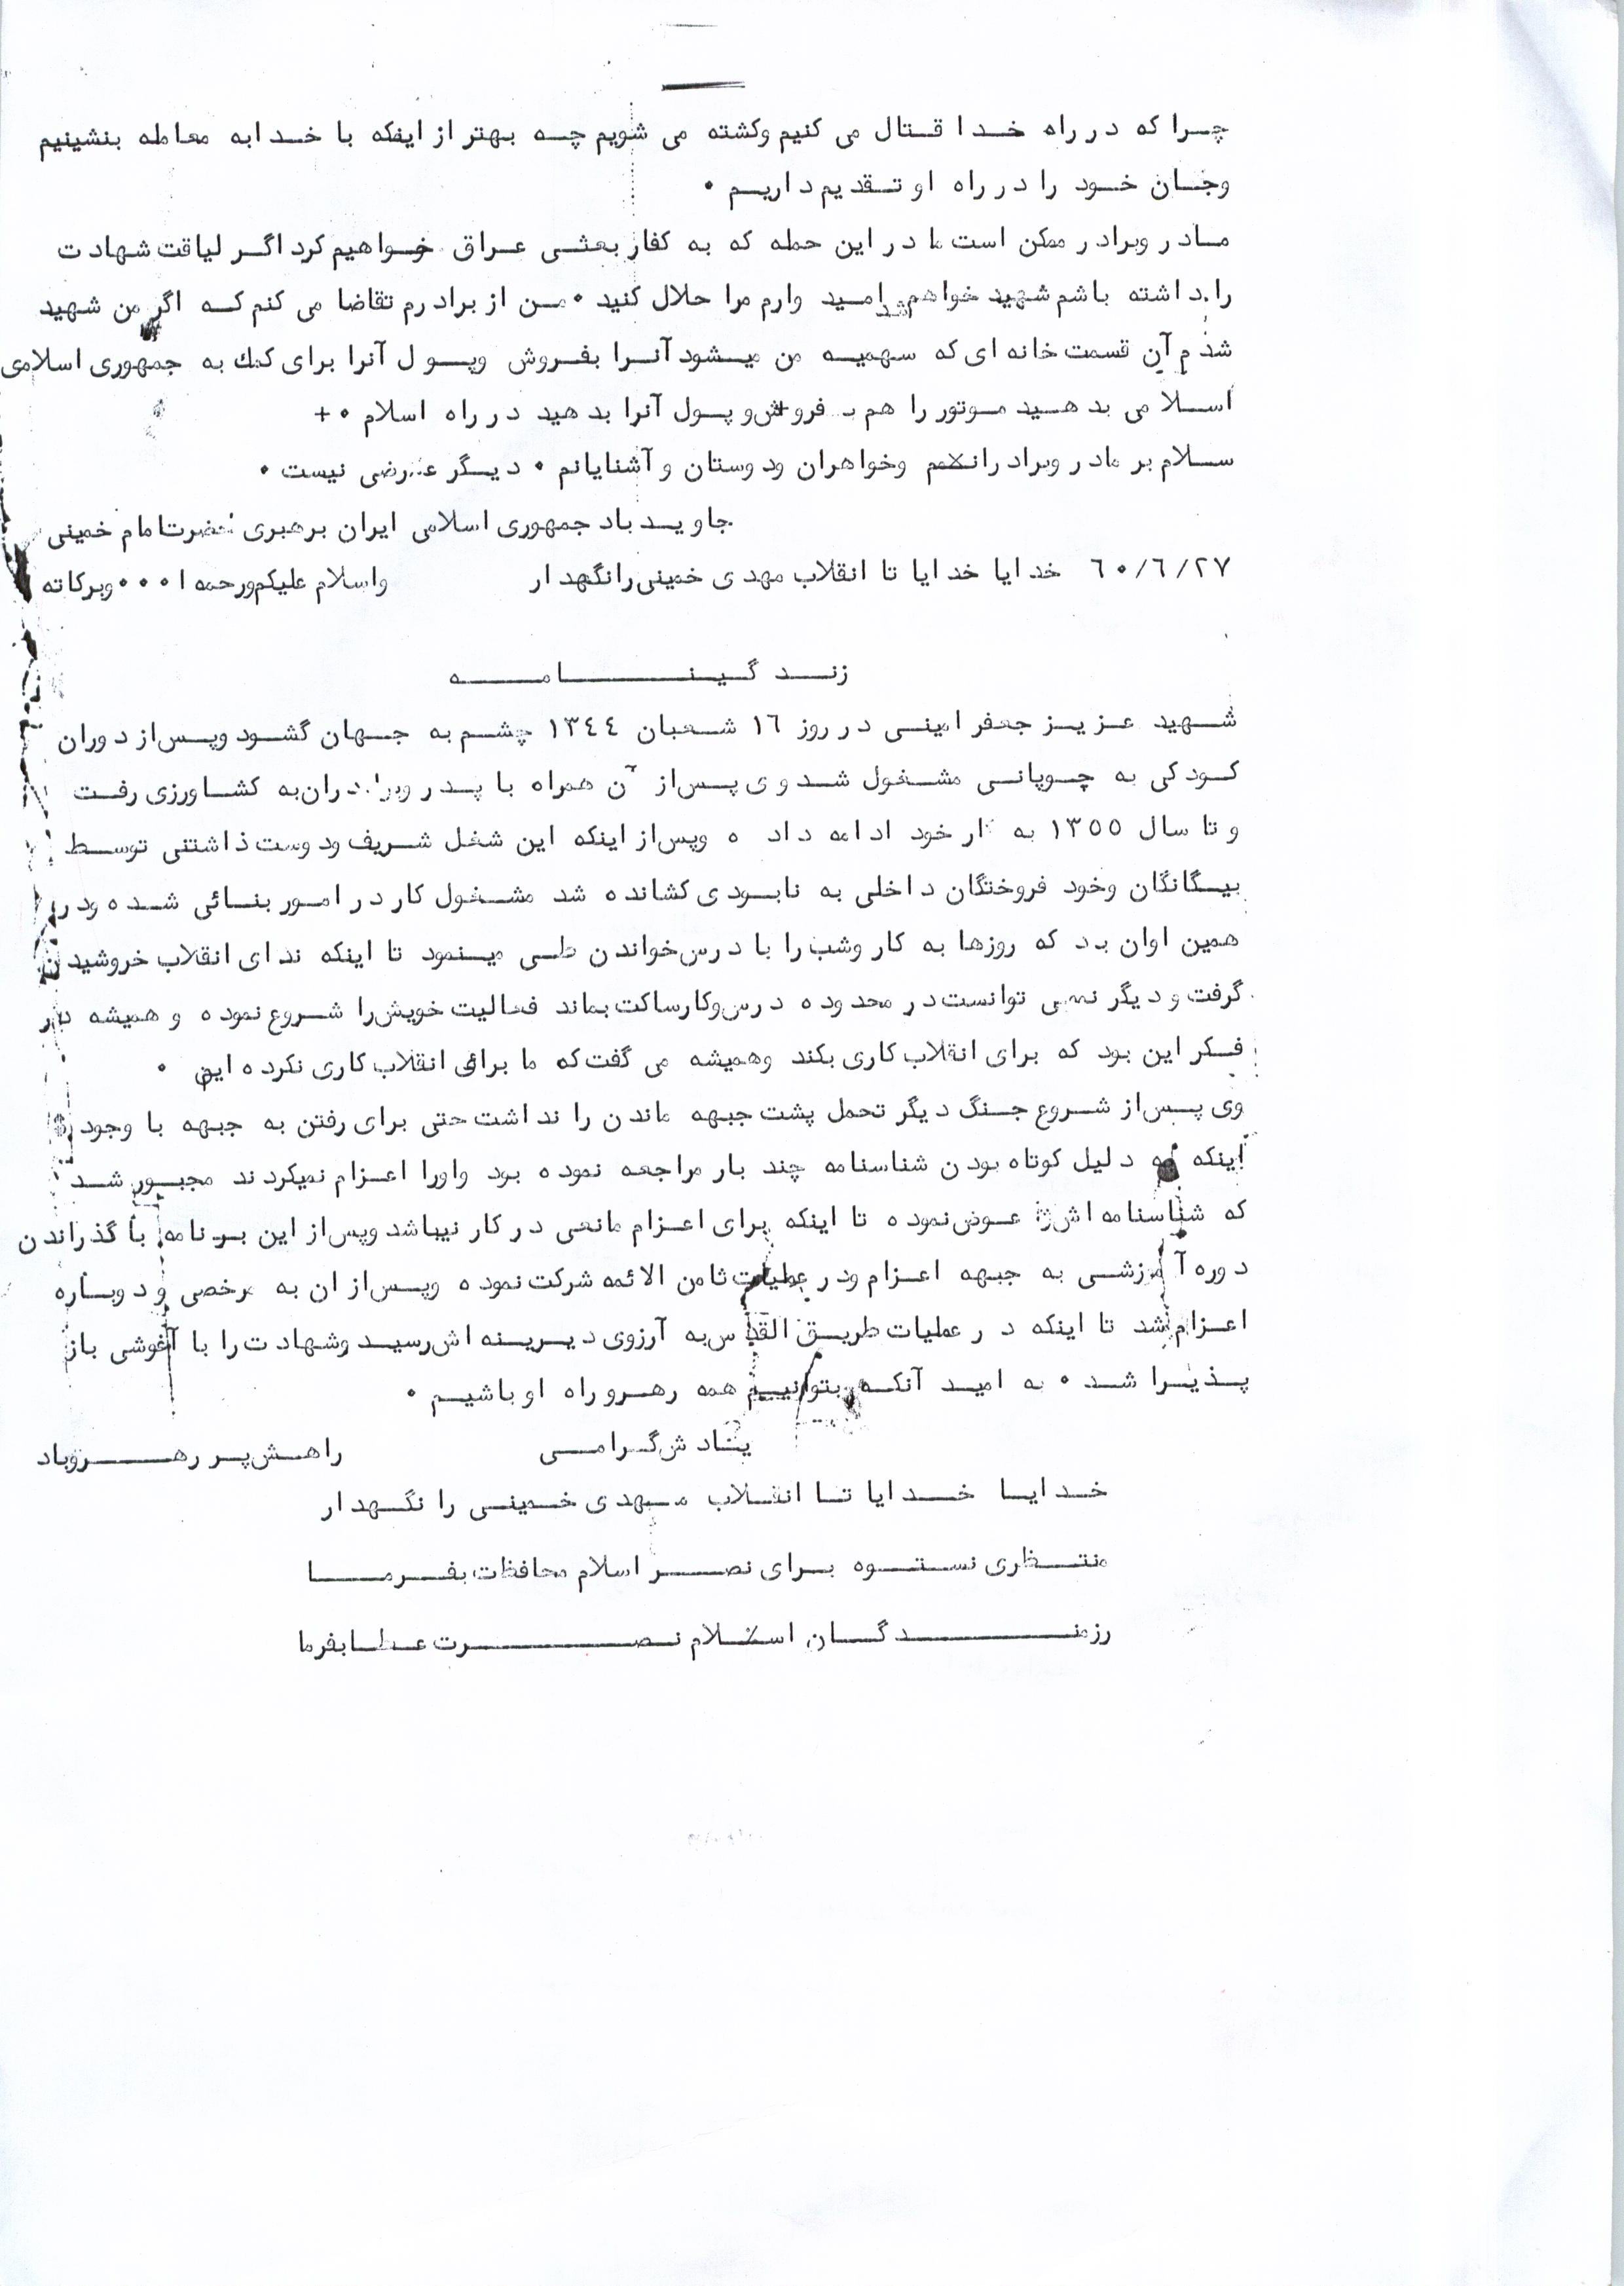 چرا که در راه خدا قتال می کنیم وکشته می شویم چه بهتر از اینکه با خدابه معامله بنشینیم
وجان خود را در راه او تقدیم داریم ۰
مادر وبرادر ممکن است ما در این حمله که به کفار بعثی عراق خواهیم کرد اگر لیاقت شهادت
را داشته باشم شهید خواهم شد امید وارم مرا حلال کنید ۰ من از برادرم تقاضا می کنم که اگر من شهید
شدم آن قسمت خانه ای که سهمیه من میشود آنرا بفروش وپول آنرا برای کمک به جمهوری اسلامی
اسلامی بدهید موتور را هم بـ فروش و پول آنرا بدهید در راه اسلام ۰+
سلام بر مادر وبرادرانم وخواهران ودوستان و آشنایانم ۰ دیگر عرضی نیست ۰
جاوید باد جمهوری اسلامی ایران برهبری حضرت امام خمینی
۶۰/۶/۲۷ خدایا خدایا تا انقلاب مهدی خمینی رانگهدار واسلام علیکم ورحمه ا ۰۰۰ وبرکاته
زندگینامه
شهید عزیز جعفر امینی در روز ۱۶ شعبان ۱۳۴۴ چشم به جهان گشود وپس از دوران
کودکی به چوپانی مشغول شد وی پس از آن همراه با پدر وبرادران به کشاورزی رفت
و تا سال ۱۳۵۵ به کار خود ادامه داده وپس از اینکه این شغل شریف ودوست ذاشتنی توسط
بیگانگان وخود فروختگان داخلی به نابودی کشانده شد مشغول کار در امور بنائی شده ودر
همین اوان بد که روزها به کار وشب را با درس خواندن طی مینمود تا اینکه ندای انقلاب خروشیدن
گرفت و دیگر نمی توانست در محدوده درس وکار ساکت بماند فعالیت خویش را شروع نموده و همیشه در
فکر این بود که برای انقلاب کاری بکند وهمیشه می گفت که ما برای انقلاب کاری نکرده ایم ۰
وی پس از شروع جنگ دیگر تحمل پشت جبهه ماندن را نداشت حتی برای رفتن به جبهه با وجود
اینکه به دلیل کوتاه بودن شناسنامه چند بار مراجعه نموده بود واورا اعزام نمیکردند مجبور شد
که شناسنامه اش را عوض نموده تا اینکه برای اعزام مانعی در کار نیباشد وپس از این برنامه با گذراندن
دوره آموزشی به جبهه اعزام ودر عملیات ثامن الائمه شرکت نموده وپس از ان به مرخصی و دوباره
اعزام شد تا اینکه در عملیات طریق القدس به آرزوی دیرینه اش رسید وشهادت را با آغوشی باز
پذیرا شد ۰ به امید آنکه بتوانیم همه رهرو راه او باشیم ۰
یادش گرامی راهش پر رهرو باد
خدایا خدایا تا انقلاب مهدی خمینی را نگهدار
منتظری نستوه برای نصر اسلام محافظت بفرما
رزمندگان اسلام نصرت عطا بفرما